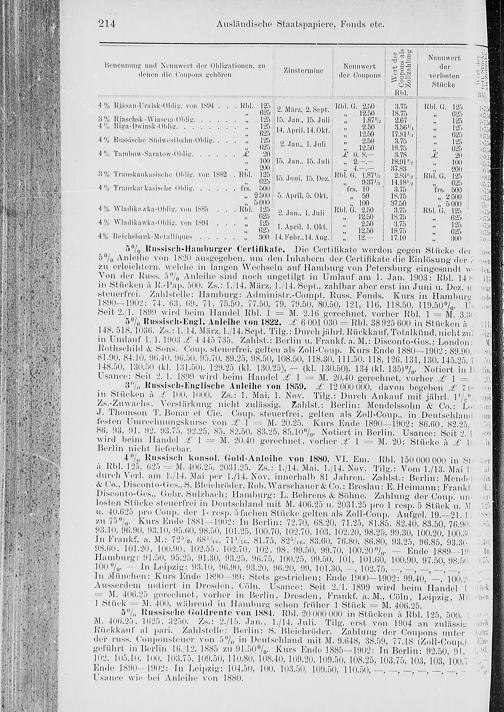 214 Ausländische Staatspapiere, Fonds etc.
Benennung und Nennwert der Obligationen, zu denen die Coupons gehören
Zinstermine
Nennwert der Coupons
Wert der Coupons als Zollzahlung
Nennwert der verlosten Stücke
Rbl.
4 % Rjäsan-Uralsk-Oblig. von 1894 . . . . Rbl. 125 2. März, 2. Sept. Rbl. G. 2.50 3.75 Rbl. G. 125
„ 625 „ 12.50 18.75 „ 625
3 % Rjaschsk-Wiasma Oblig. . . . . „ 125 15. Jan., 15. Juli „ 1.87½ 2.67 „ 125
4 % Riga-Dwinsk-Oblig. . . . . „ 125 14. April, 14. Okt.
4 % Russische Südwestbahn-Oblig. . . . . „ 125 2. Jan., 1. Juli „ 2.50 3.75 „ 125
„ 625 „ 12.50 18.75 „ 625
4 % Tambow-Saratow-Oblig. . . . . £ 20 £ 0. 8.— 3.78 £ 20
„ 100 15. Jan., 15. Juli „ 2.—.— 18.91½ „ 100
„ 200 „ 4.—.— 37.83 „ 200
3 % Transkaukasische Oblig. von 1882 . . Rbl. 125 15. Juni, 15. Dez. Rbl. G. 1.87½ 2.83½ Rbl. G. 125
„ 625 „ 9.37½ 14.18½ „ 625
4 % Transkarkasische Oblig. . . . . frs. 500 frs. 10 3.75 frs. 500
„ 2 500 5. April, 5. Okt. „ 50 18.75 „ 2 500
„ 5 000 „ 100 37.50 „ 5 000
4 % Wladikawka-Oblig. von 1885 . . . . Rbl. 125 2. Jan., 1. Juli Rbl. G. 2.50 3.75 Rbl. G. 125
„ 625 „ 12.50 18.75 „ 625
4 % Wladikawka-Oblig. von 1894 . . . . „ 125 1. April, 1. Okt. „ 2.50 3.75 „ 125
„ 625 „ 12.50 18.75 „ 625
4 % Reichsbank-Metalliques . . . . „ 300 14. Febr., 14. Aug. „ 12.— 17.10 „ 300
5% Russisch-Hamburger Certifikate. Die Certifikate werden gegen Stücke der
5% Anleihe von 1820 ausgegeben, um den Inhabern der Certifikate die Einlösung der
zu erleichtern, welche in langen Wechseln auf Hamburg von Petersburg eingesandt
Von der Russ. 5% Anleihe sind noch ungetilgt in Umlauf am 1. Jan. 1903: Rbl. 14
in Stücken à R.-Pap. 500. Zs.: 1./14. März, 1./14. Sept., zahlbar aber erst im Juni u. Dez.
steuerfrei. Zahlstelle: Hamburg: Administr.-Compt. Russ. Fonds. Kurs in Hamburg
1890—1902: 74, 63, 69, 71, 75.50, 77.50, 79, 79.50, 80.50, 121, 116, 118.50, 119.50%.
Seit 2./1. 1899 wird beim Handel Rbl. 1 = M. 2.16 gerechnet, vorher Rbl. 1 = M. 3.30
5% Russisch-Engl. Anleihe von 1822. £ 6 001 030 = Rbl. 38 925 600 in Stücken à
148, 518, 1036. Zs.: 1./14. März, 1./14. Sept. Tilg.: Durch jährl. Rückkauf, Totalkünd. nicht
in Umlauf 1. 1. 1903 £ 4 445 735. Zahlst.: Berlin u. Frankf. a. M.: Disconto-Ges.; London:
Rothschild & Sons. Coup. steuerfrei, gelten als Zoll-Coup. Kurs Ende 1880—1902: 89.90,
81.90, 84.10, 96.40, 96.50, 95.70, 89.25, 98.50, 108.50, 118.30, 111.50, 118, 126, 131, 130, 145.25,
148.50, 130.50 (kl. 131.50), 129.25 (kl. 130.25), — (kl. 130.50), 134 (kl. 135)%. Notiert in
Usance: Seit 2. 1. 1899 wird beim Handel £ 1 = M. 20.40 gerechnet, vorher £ 1 =
3% Russisch-Englische Anleihe von 1859. £ 12 000 000, davon begeben £ 7
in Stücken à £ 100, 1000. Zs.: 1. Mai, 1. Nov. Tilg.: Durch Ankauf mit jährl. 1½%
Zs.-Zuwachs. Verstärkung nicht zulässig. Zahlst.: Berlin: Mendelssohn & Co.;
J. Thomson T. Bonar et Cie. Coup. steuerfrei, gelten als Zoll-Coup., in Deutschland
festen Umrechnungskurse von £ 1 = M. 20.25. Kurs Ende 1890—1902: 86.60, 82.25,
86, 93, 91, 92, 93.75, 92.25, 85, 82.50, 83.25, 85.10%. Notiert in Berlin. Usance: Seit 2.
wird beim Handel £ 1 = M. 20.40 gerechnet, vorher £ 1 = M. 20; Stücke à £
Berlin nicht lieferbar.
4% Russisch konsol. Gold-Anleihe von 1880, VI. Em. Rbl. 150 000 000 in
à Rbl. 125, 625 = M. 406.25, 2031.25. Zs.: 1./14. Mai, 1./14. Nov. Tilg.: Vom 1./13. Mai
durch Verl. am 1./14. Mai per 1./14. Nov. innerhalb 81 Jahren. Zahlst.: Berlin:
& Co., Disconto-Ges., S. Bleichröder, Rob. Warschauer & Co.; Breslau: E. Heimann; Frankf.
Disconto-Ges., Gebr. Sulzbach; Hamburg: L. Behrens & Söhne. Zahlung der Coup.
losten Stücke steuerfrei in Deutschland mit M. 406.25 u. 2031.25 pro 1 resp. 5 Stück u.
u. 40.625 pro Coup. der 1- resp. 5 fachen Stücke gelten als Zoll-Coup. Aufgel. 19.—21. 1.
zu 75%. Kurs Ende 1881—1902: In Berlin: 72.70, 68.20, 71.25, 81.85, 82.40, 83.50, 76.90,
93, 93.10, 96.10, 93.60, 95.60, 98.50, 101.25, 100.70, 102.70, 103, 102.20, 98.25, 99.30, 100.20,
In Frankf. a. M.: 83.60, 76.80, 86.80, 93.25, 96.85, 93.30,
98.60, 101.20, 100.90, 102.55, 102.70, 102, 98, 99.50, 99.70, 100.20%. — Ende 1889—
Hamburg: 91.50, 95.25, 91.30, 93.25, 96.75, 100.25, 99.50, 101, 101.60, 100.90, 97.50, 98.50
100%. — In Leipzig: 93.10, 96.90, 93.20, 96.20, 99, 101.30, —, 102.75, —, —,
In München: Kurs Ende 1890—99: Stets gestrichen; Ende 1900—1902: 99.40, —, 100.
Ausserdem notiert in Dresden, Cöln. Usance: Seit 2. 1. 1899 wird beim Handel 1
= M. 406.25 gerechnet, vorher in Berlin, Dresden, Frankf. a. M., Cöln, Leipzig,
1 Stück = M. 400, während in Hamburg schon früher 1 Stück = M. 406.25.
5% Russische Goldrente von 1884. Rbl. 20 000 000 in Stücken à Rbl. 125, 500,
M. 406.25, 1625, 3250. Zs.: 2./15. Jan., 1./14. Juli. Tilg. erst von 1904 an zulässig
Rückkauf al pari. Zahlstelle: Berlin: S. Bleichröder. Zahlung der Coupons unter
der russ. Couponsteuer von 5% in Deutschland mit M. 9.648, 38.59, 77.18 (Zoll-Coup.)
geführt in Berlin 16. 12. 1885 zu 91.50%. Kurs Ende 1885—1902: In Berlin: 92.50, 91,
102, 105.10, 100, 103.75, 109.50, 110.80, 108.40, 109.20, 109.50, 108.25, 103.75, 103, 103, 100.
Ende 1890—1902: In Leipzig: 104.50, 100, 103.50, 109.50, 110.50, —, —, —, —, —,
Usance wie bei Anleihe von 1880.